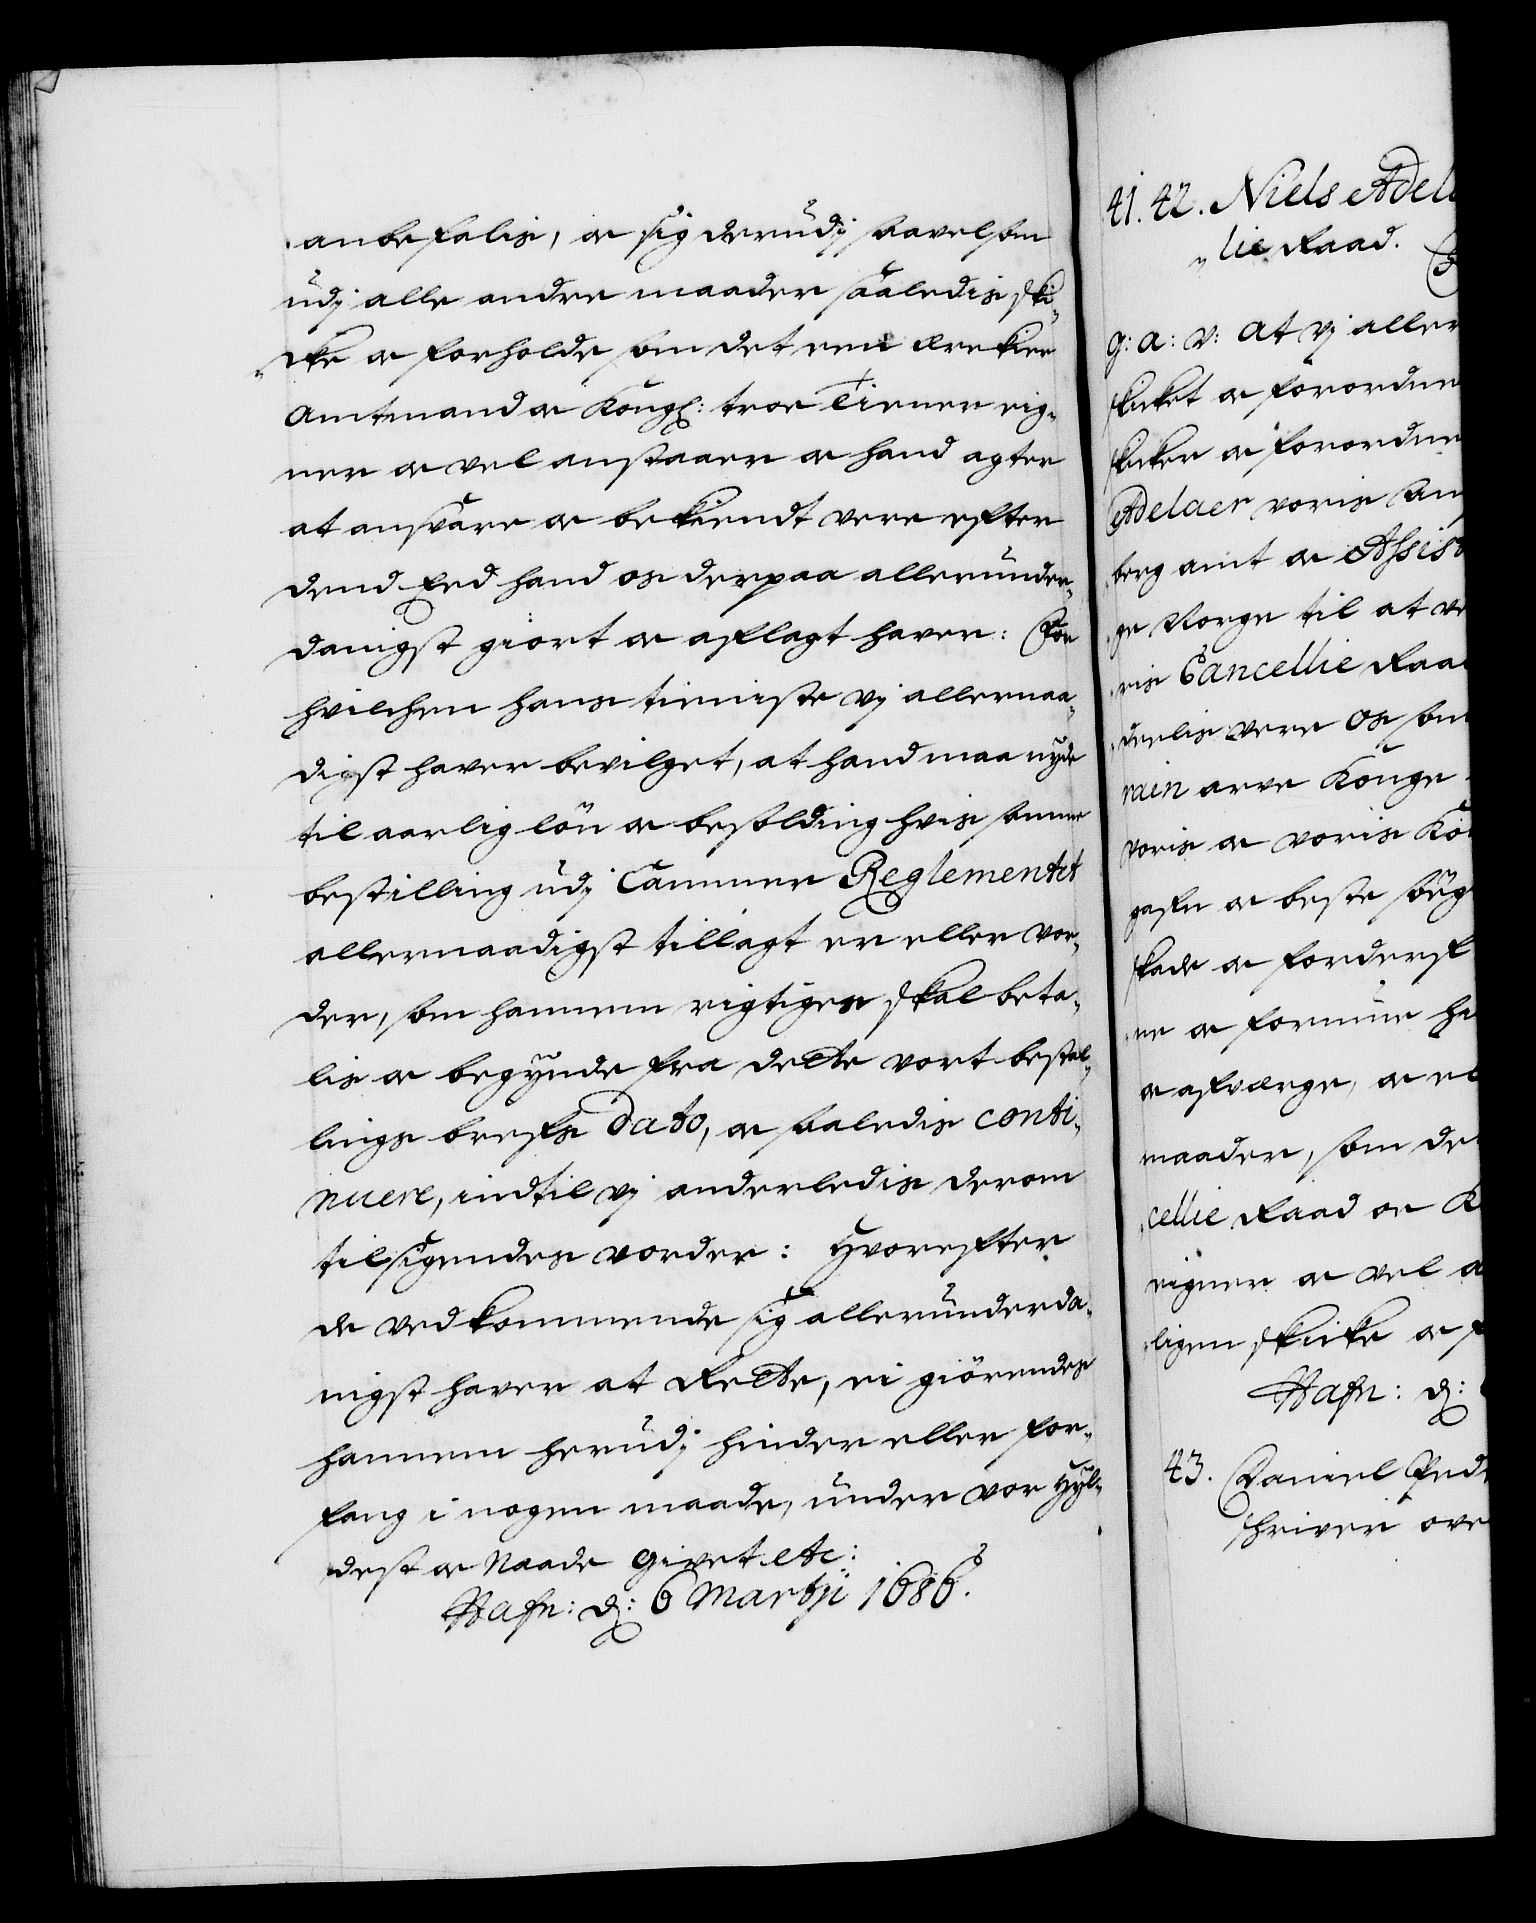 anbefalis, oc sig derudj saavel som
udj alle andre maader saaledis ski-
cke oc forholde som det een ærekier
Amtmand oc Kongl: troe Tiener eig-
ner oc vel anstaaer oc hand agter
at ansvare oc bekiendt vere efter
dend Eed hand os derpaa allerunder-
danigst giort oc aflagt haver: For
hvilchen hans tieniste vj allernaa-
digst haver bevilget, at hand maa nyde
til aarlig lön oc besolding hvis samme
bestilling udj Cammer Reglementet
allernaadigst tillagt er eller vor-
der, som hannem rigtigen skal beta-
lis oc begynde fra dette vort bestal-
lings brefs Dato, oc saaledis conti-
nuere, indtil vj anderledis derom
tilsigendes vorder: Hvorefter
de vedkommende sig allerunderda-
nigst haver at Rette, ei giörendes
hannem herudj hinder eller for-
fang i nogen maade, under vor Hyl-
dest oc Naade Givet etc:
Hafn: d: 6 Martij 1686.
41. 42. Niels Adel
lie Raad.
g: a: v: At vj aller
skicket oc forordne
skicker oc forordne
Adelaer voris Am
berg amt oc Assis
ge Norge til at ve
ris Cancellie Raa
deelis vere os som
rain arve Konge
voris oc voris Ko
gafn oc beste sög
skade oc forderf
ne oc formue ha
oc afverge, oc el
maader, som de
cellie Raad oc K
eigner oc vel a
ligen skicke oc f
Hafn: d:
43. Daniel Ped
skriver ove